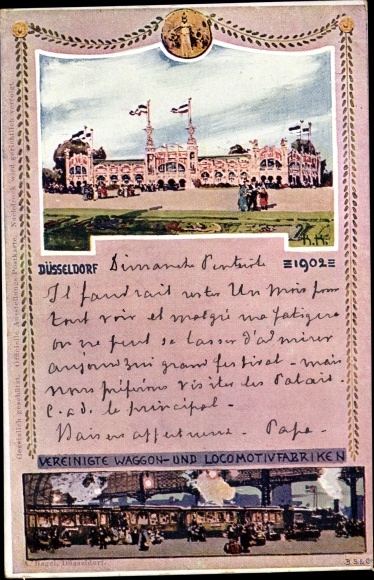 DÜSSELDORF Dimanche Pentecôte 1902
Il faudrait rester Un mois pour
tout voir et malgré ma fatigue
on ne peut se lasser d'admirer
aujourd'hui grand festival - mais
nous préférons visiter les Palais -
C.a.d. le principal -
Baisers affectueux - Papa -
VEREINIGTE WAGGON- UND LOCOMOTIVFABRIKEN
A. Bagel, Düsseldorf.
Gesetzlich geschützt. Offizielle Ausstellungs-Postkarte. Nachdruck wird gerichtlich verfolgt.